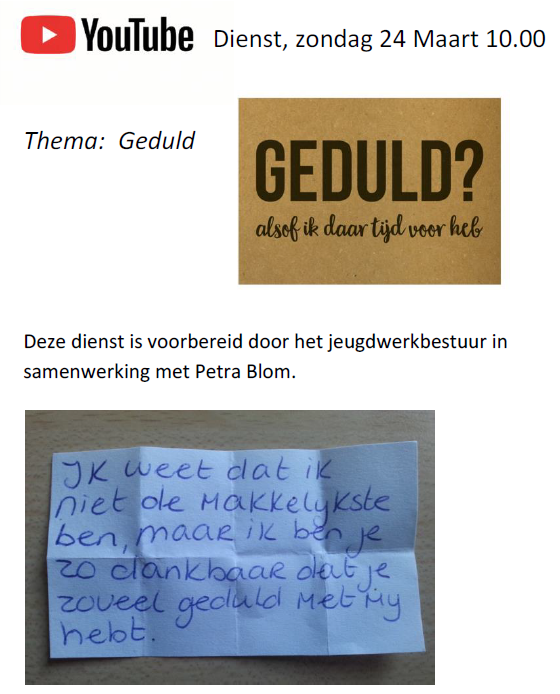 YouTube Dienst, zondag 24 Maart 10.00
Thema: Geduld
GEDULD?
alsof ik daar tijd voor heb
Deze dienst is voorbereid door het jeugdwerkbestuur in
samenwerking met Petra Blom.
IK weet dat ik
niet de makkelijkste
ben, maar ik ben je
zo dankbaar dat je
zoveel geduld met mij
hebt.